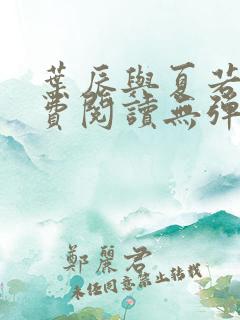 葉辰與夏若
費閱讀無彈
鄭麗君
未经同意禁止转载